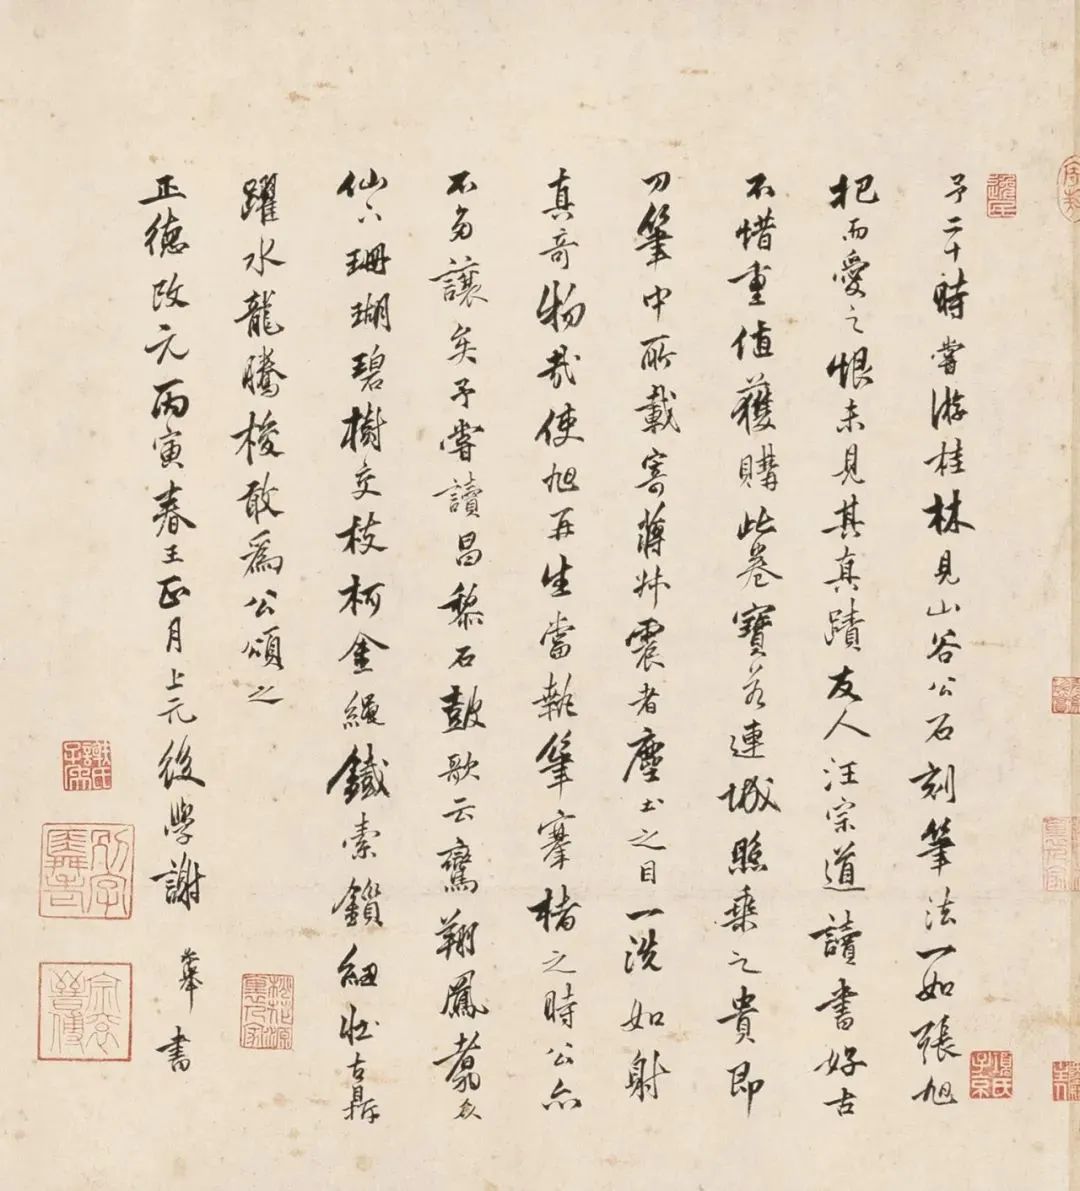 予二十時嘗游桂林見山谷公石刻筆法一如張旭
把而愛之恨未見其真蹟友人汪宗道讀書好古
不惜重值獲購此卷寶若連城照乘之貴即
刀筆中所載寄蔣艸震者塵土之目一洗如射
真奇物哉使旭再生當執筆搴楮之時公亦
不多讓矣予嘗讀昌黎石鼓歌云鸞翔鳳翥眾
仙下珊瑚碧樹交枝柯金繩鐵索鎖細壯古鼎
躍水龍騰梭敢為公頌之
正德改元丙寅春王正月上元後學謝舉書
項氏子京
桃花源裏人家